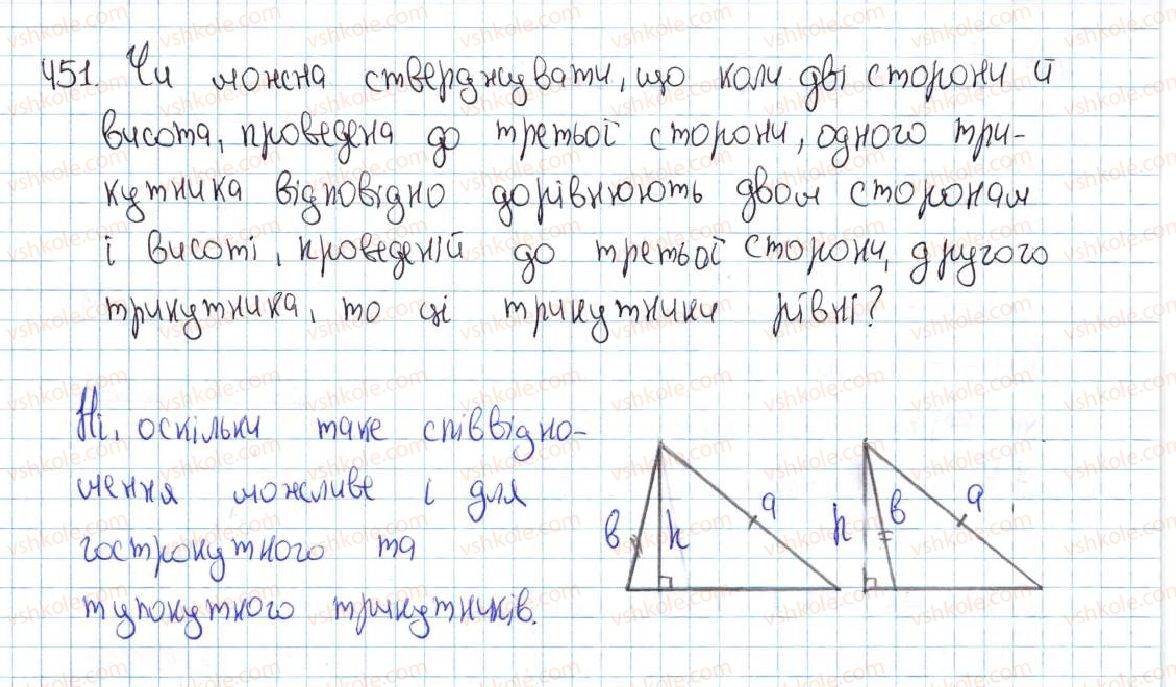 451. Чи можна стверджувати, що коли дві сторони й
висота, проведена до третьої сторони, одного три-
кутника відповідно дорівнюють двом сторонам
і висоті, проведеній до третьої сторони, другого
трикутника, то ці трикутники рівні?
Ні, оскільки таке співвідно-
шення можливе і для
гострокутного та
тупокутного трикутників.
в h а
h в а
vshkole.com